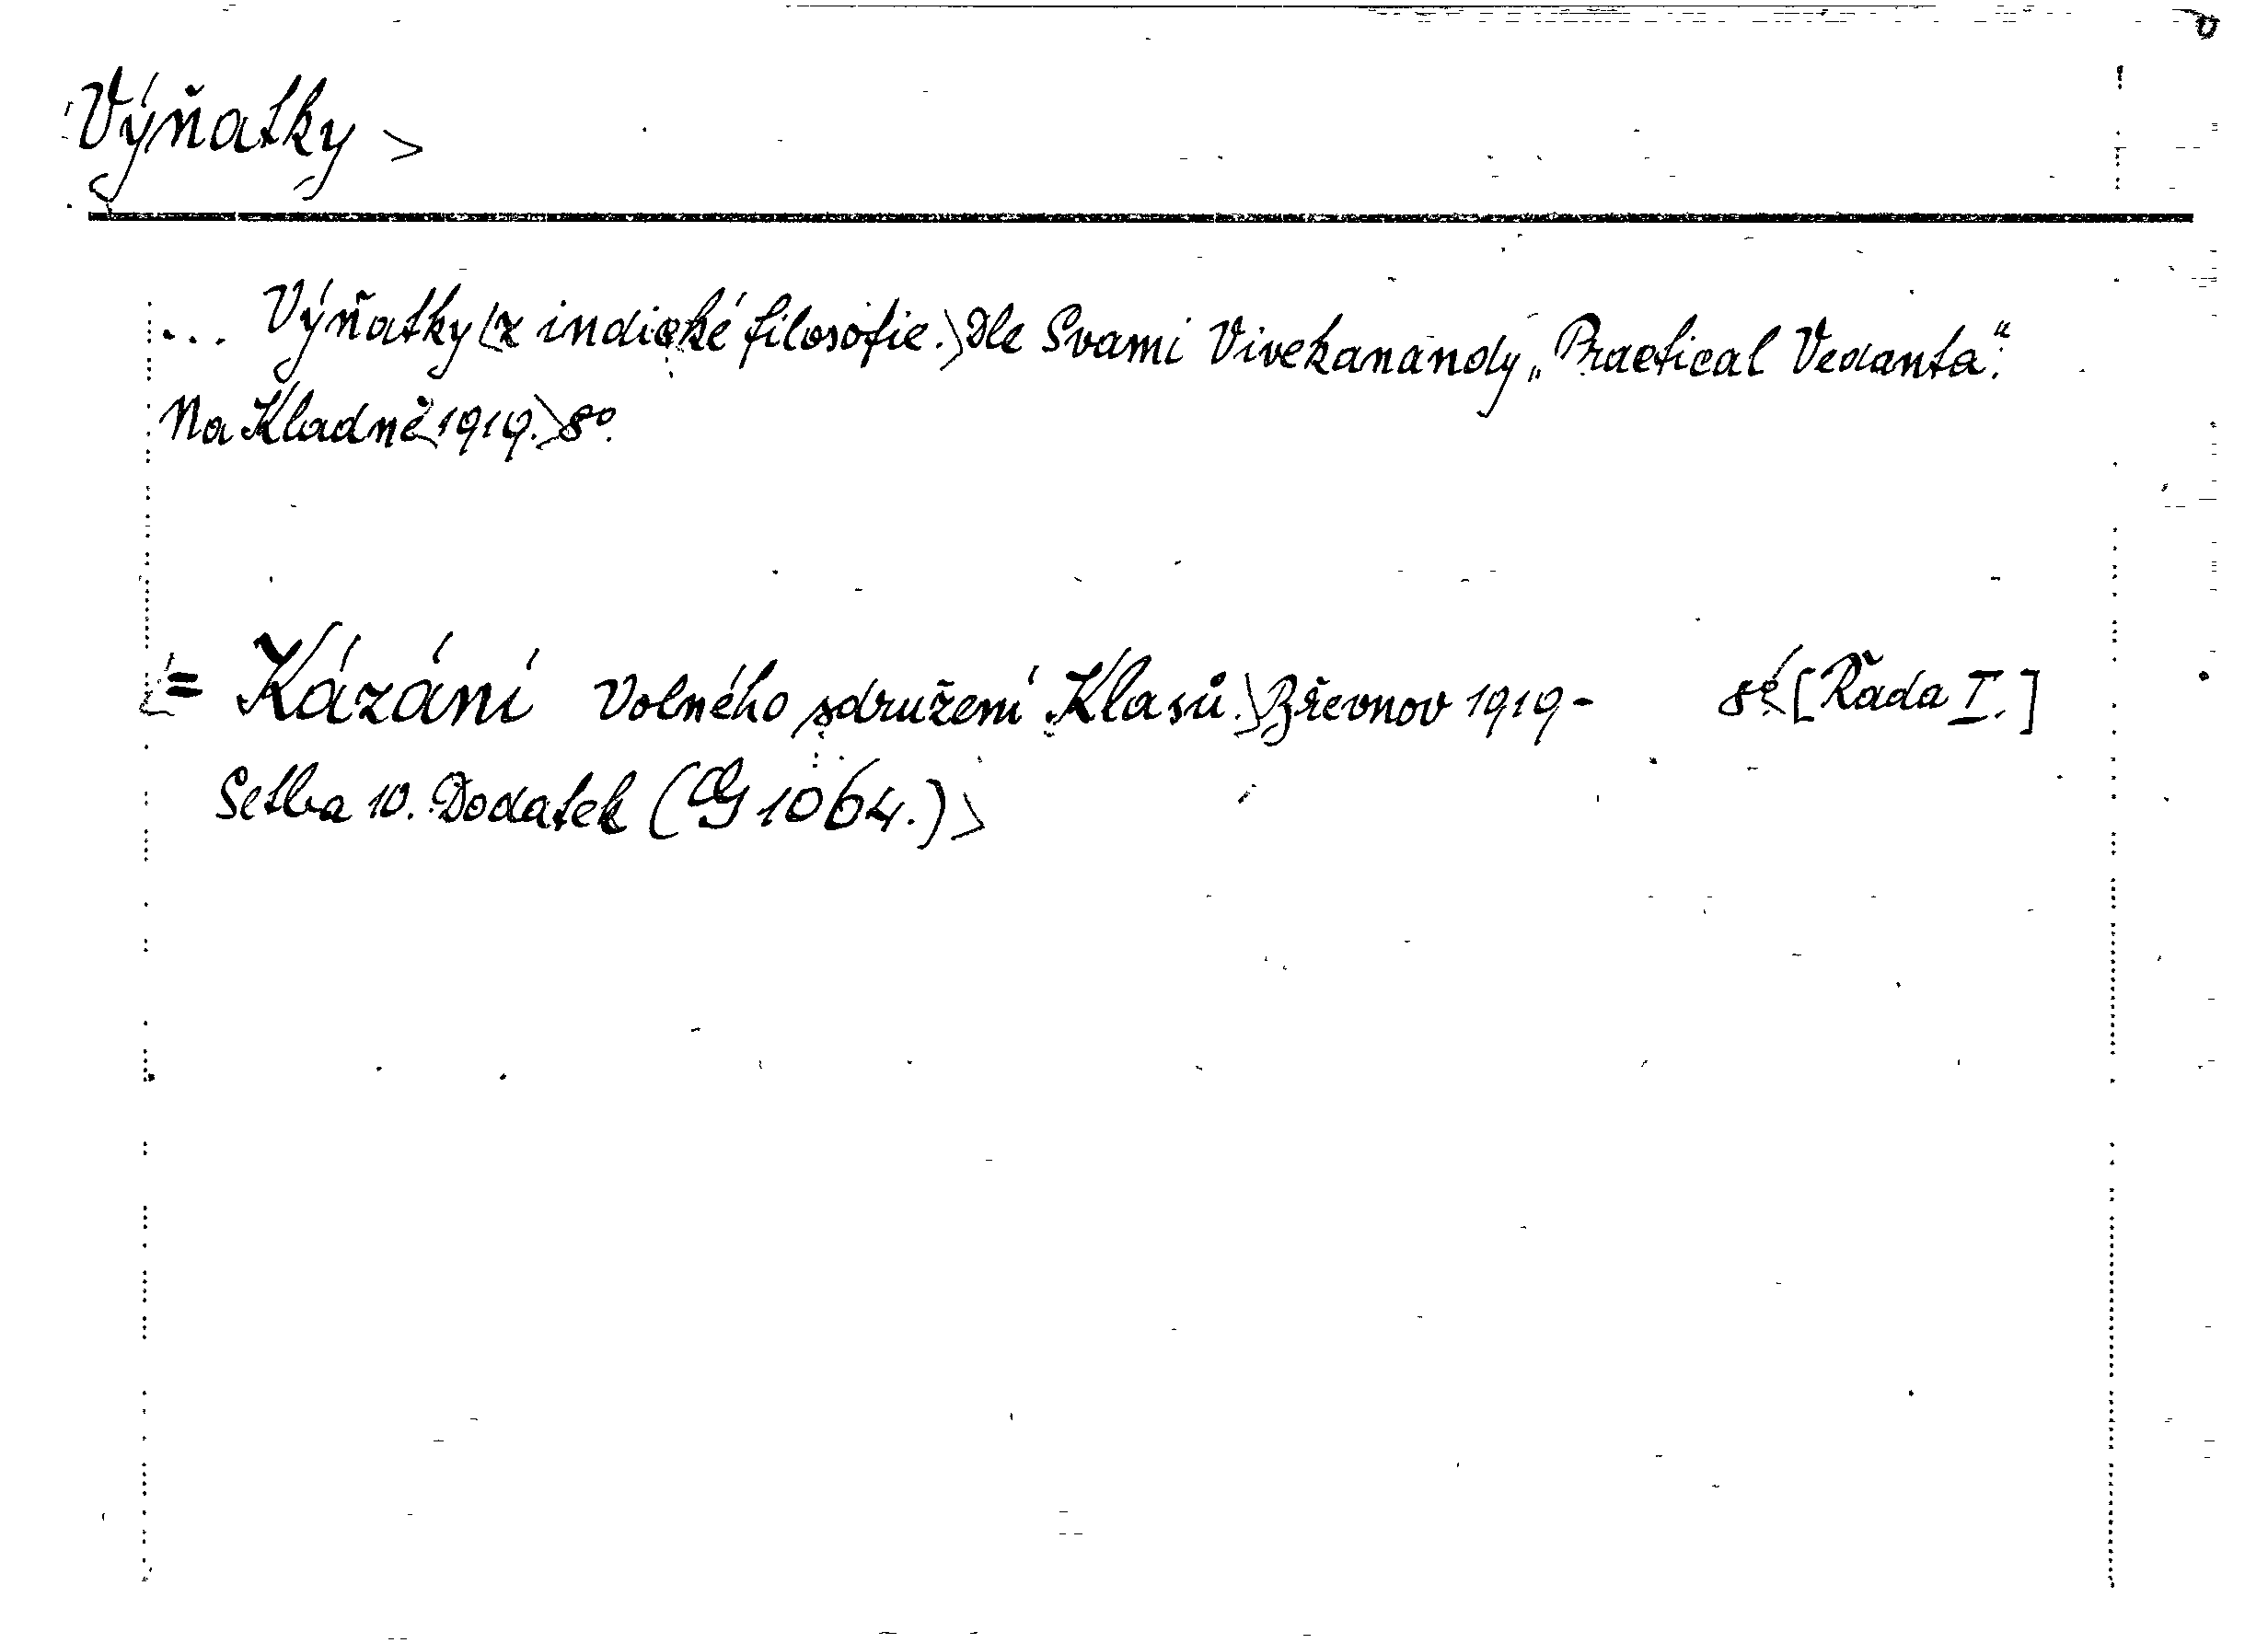 Výňatky >
... Výňatky <z indické filosofie.> Dle Svami Vivekanandy „Practical Vedanta“.
Na Kladně <1919.> 8°.
= Kázání volného sdružení Klasů.> Břevnov 1919- 8°. <[Řada I.]
Setba 10. Dodatek (Cg 1064.)>